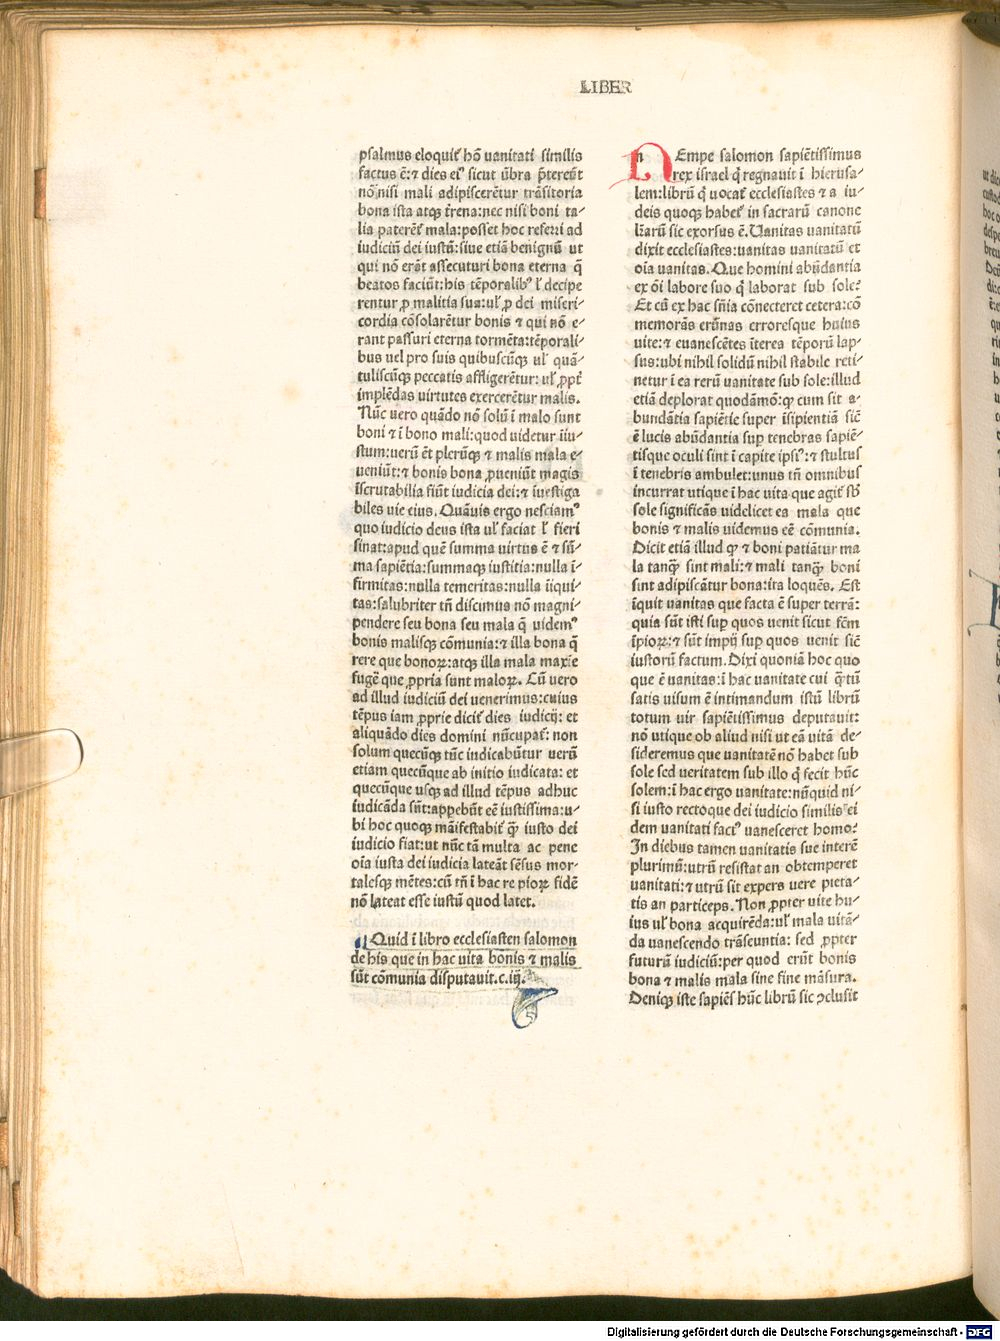 LIBER
psalmus eloquit᷒ hō uanitati similis
factus ē:⁊ dies ei᷒ sicut ūbra p̄tereūt
nō nisi mali adipiscerētur trāsitoria
bona ista atqꝫ t̄rena:nec nisi boni ta⸗
lia paterēt᷒ mala:posset hoc referri ad
iudiciū dei iustū:siue etiā benignū ut
qui nō erāt assecuturi bona eterna q̄
beatos faciūt:his tēporalib᷒ l̄ decipe
rentur ꝓ malitia sua:ul᷒ ꝓ dei miseri⸗
cordia cōsolarētur bonis ⁊ qui nō e⸗
rant passuri eterna tormēta:tēporali⸗
bus uel pro suis quibuscūqꝫ ul᷒ quā⸗
tuliscūqꝫ peccatis affligerētur: ul᷒ ꝓpt᷒
implēdas virtutes exercerētur malis.
Nūc uero quādo nō solū ī malo sunt
boni ⁊ ī bono mali:quod uidetur īiu⸗
stum:uerū ēt plerūqꝫ ⁊ malis mala e⸗
ueniūt:⁊ bonis bona ꝓueniūt magis
īscrutabilia fiūt iudicia dei:⁊ īuestiga
biles uie eius. Quāuis ergo nesciam᷒
quo iudicio deus ista ul᷒ faciat l̄ fieri
sinat:apud quē summa virtus ē ⁊ sū⸗
ma sapiētia:summaqꝫ iustitia:nulla ī⸗
firmitas:nulla temeritas:nulla īiqui⸗
tas:salubriter tn̄ discimus nō magni⸗
pendere seu bona seu mala q̄ uidem᷒
bonis malisqꝫ cōmunia:⁊ illa bona q̄
rere que bonoꝝ:atqꝫ illa mala maxīe
fugē que ꝓpria sunt maloꝝ. Cū uero
ad illud iudiciū dei venerimus:cuius
tēpus iam ꝓprie dicit᷒ dies iudicij: et
aliquādo dies domini nūcupat᷒: non
solum quecūqꝫ tūc iudicabūtur uerū
etiam quecūque ab initio iudicata: et
quecūque usqꝫ ad illud tēpus adhuc
iudicāda sūt:appebūt eē iustissima:u⸗
bi hoc quoqꝫ māifestabit᷒ qꝫ̄ iusto dei
iudicio fiat:ut nūc tā multa ac pene
oīa iusta dei iudicia lateāt sēsus mor⸗
talesqꝫ mētes:cū tn̄ ī hac re pioꝝ fidē
nō lateat esse iustū quod latet.
¶ Quid ī libro ecclesiasten salomon
de his que in hac uita bonis ⁊ malis
sūt cōmunia disputauit.c.iij.
NEmpe salomon sapiētissimus
rex israel q̄ regnauit ī hierusa⸗
lem:librū q̄ uocat᷒ ecclesiastes ⁊ a iu⸗
deis quoqꝫ habet᷒ in sacrarū canone
lr̄arū sic exorsus ē. Uanitas uanitatū
dixit ecclesiastes:uanitas uanitatū et
oīa uanitas. Que homini abūdantia
ex ōi labore suo q̄ laborat sub sole?
Et cū ex hac sn̄ia cōnecteret cetera:cō
memorās erūnas erroresque huius
uite:⁊ euanescētes īterea tēporū lap⸗
sus:ubi nihil solidū nihil stabile reti⸗
netur ī ea rerū uanitate sub sole:illud
etiā deplorat quodāmō:ꝙ cum sit a⸗
bundātia sapiētie super īsipientiā sic̄
ē lucis abūdantia suꝑ tenebras sapiē⸗
tisque oculi sint ī capite ipsi᷒:⁊ stultus
ī tenebris ambulet:unus tn̄ omnibus
incurrat utique ī hac uita que agit᷒ sb̄
sole significās uidelicet ea mala que
bonis ⁊ malis uidemus eē cōmunia.
Dicit etiā illud ꝙ ⁊ boni patiātur ma
la tanqꝫ̄ sint mali:⁊ mali tanqꝫ̄ boni
sint adipiscātur bona:ita loquēs. Est
īquit uanitas que facta ē super terrā:
quia sūt isti suꝑ quos uenit sicut fc̄m
īpioꝝ:⁊ sūt impij suꝑ quos uenit sic̄
iustorū factum. Dixi quoniā hoc quo
que ē uanitas:ī hac uanitate cui q̄tū
satis uisum ē intimandum istū librū
totum uir sapiētissimus deputauit:
nō utique ob aliud nisi ut eā uitā de⸗
sideremus que uanitatē nō habet sub
sole sed ueritatem sub illo q̄ fecit hūc
solem:ī hac ergo uanitate:nūquid ni⸗
si iusto rectoque dei iudicio similis ei
dem uanitati fact᷒ uanesceret homo?
In diebus tamen uanitatis sue interē
plurimū:utrū resistat an obtemperet
uanitati:⁊ utrū sit expers uere pieta⸗
tis an particeps. Non ꝓpter uite hu⸗
ius ul᷒ bona acquirēda:ul᷒ mala uitā⸗
da uanescendo trāseuntia: sed ꝓpter
futurā iudiciū:per quod erūt bonis
bona ⁊ malis mala sine fine māsura.
Deniqꝫ iste sapiēs hūc librū sic ꝯclusit
Digitalisierung gefördert durch die Deutsche Forschungsgemeinschaft - DFG